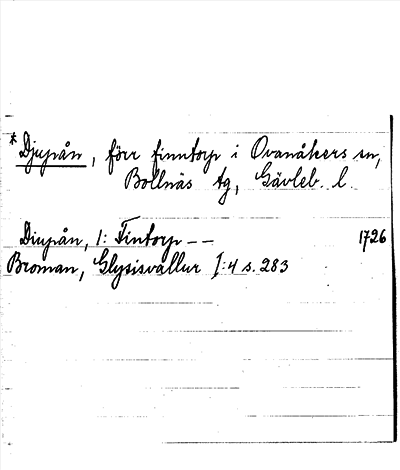 * Djupån, förr finntorp i Ovanåkers sn,
Bollnäs tg, Gävleb. l.
Diupån, 1: Fintorp -- 1726
Broman, Glysisvallur I:4 s. 283